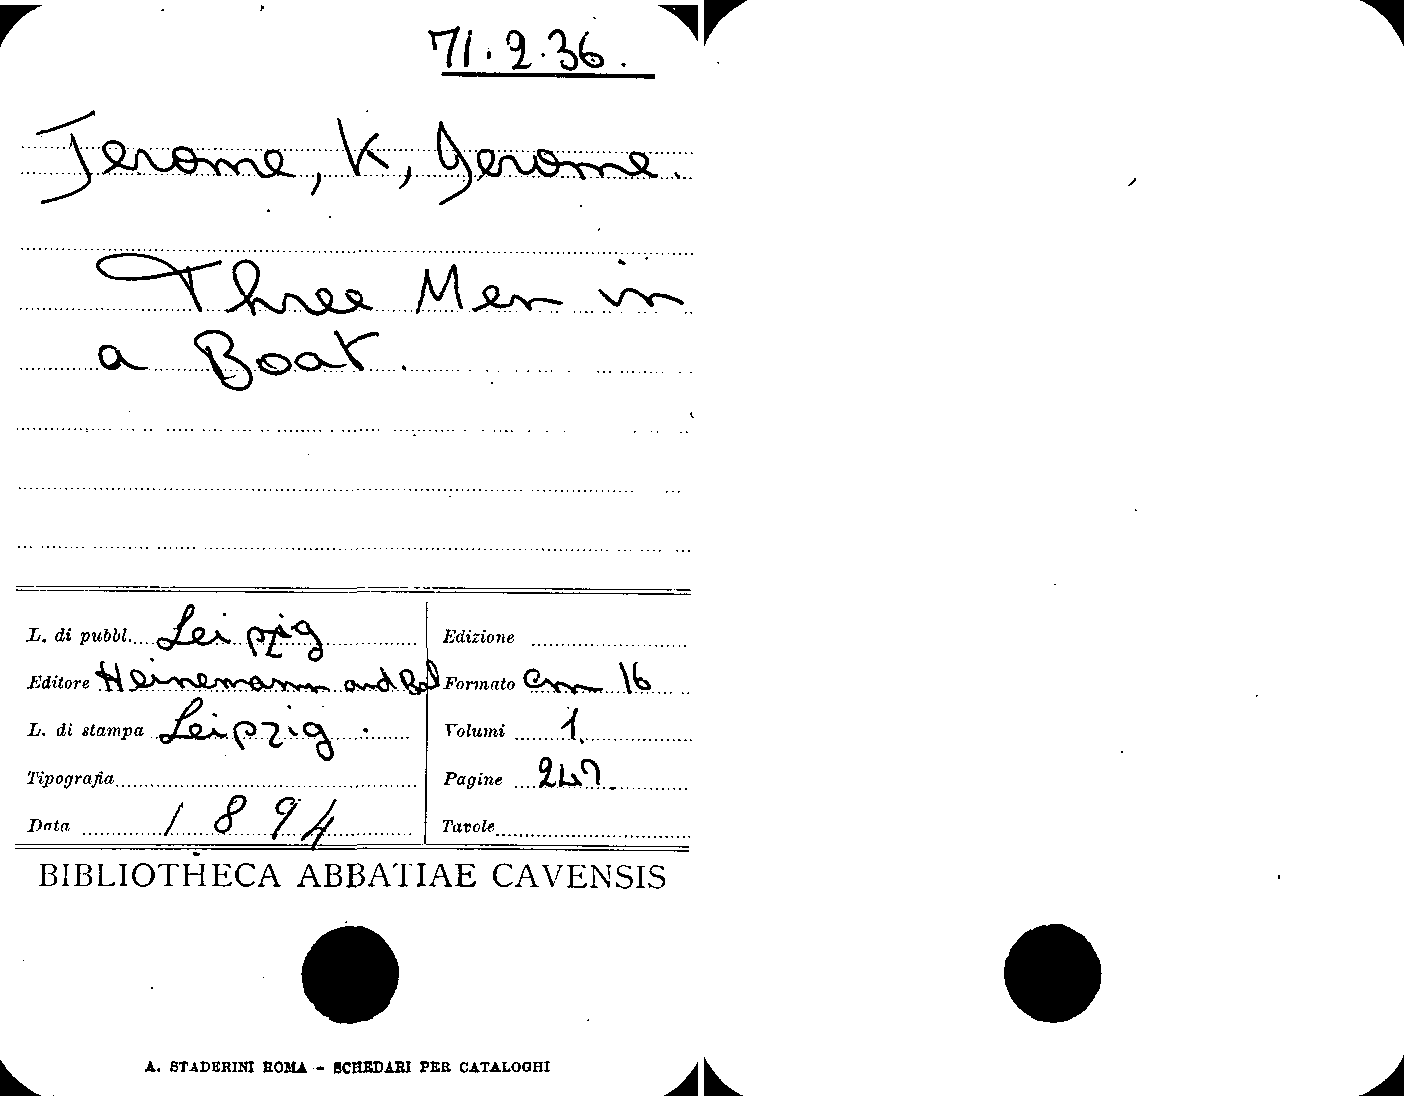 71.2.36.
Jerome, K, Jerome.
Three Men in
a Boat.
L. di pubbl. Leipzig
Editore Heinemann and Bal
L. di stampa Leipzig.
Tipografia
Data 1894
Edizione
Formato cm 16
Volumi 1.
Pagine 247.
Tavole
BIBLIOTHECA ABBATIAE CAVENSIS
A. STADERINI ROMA - SCHEDARI PER CATALOGHI